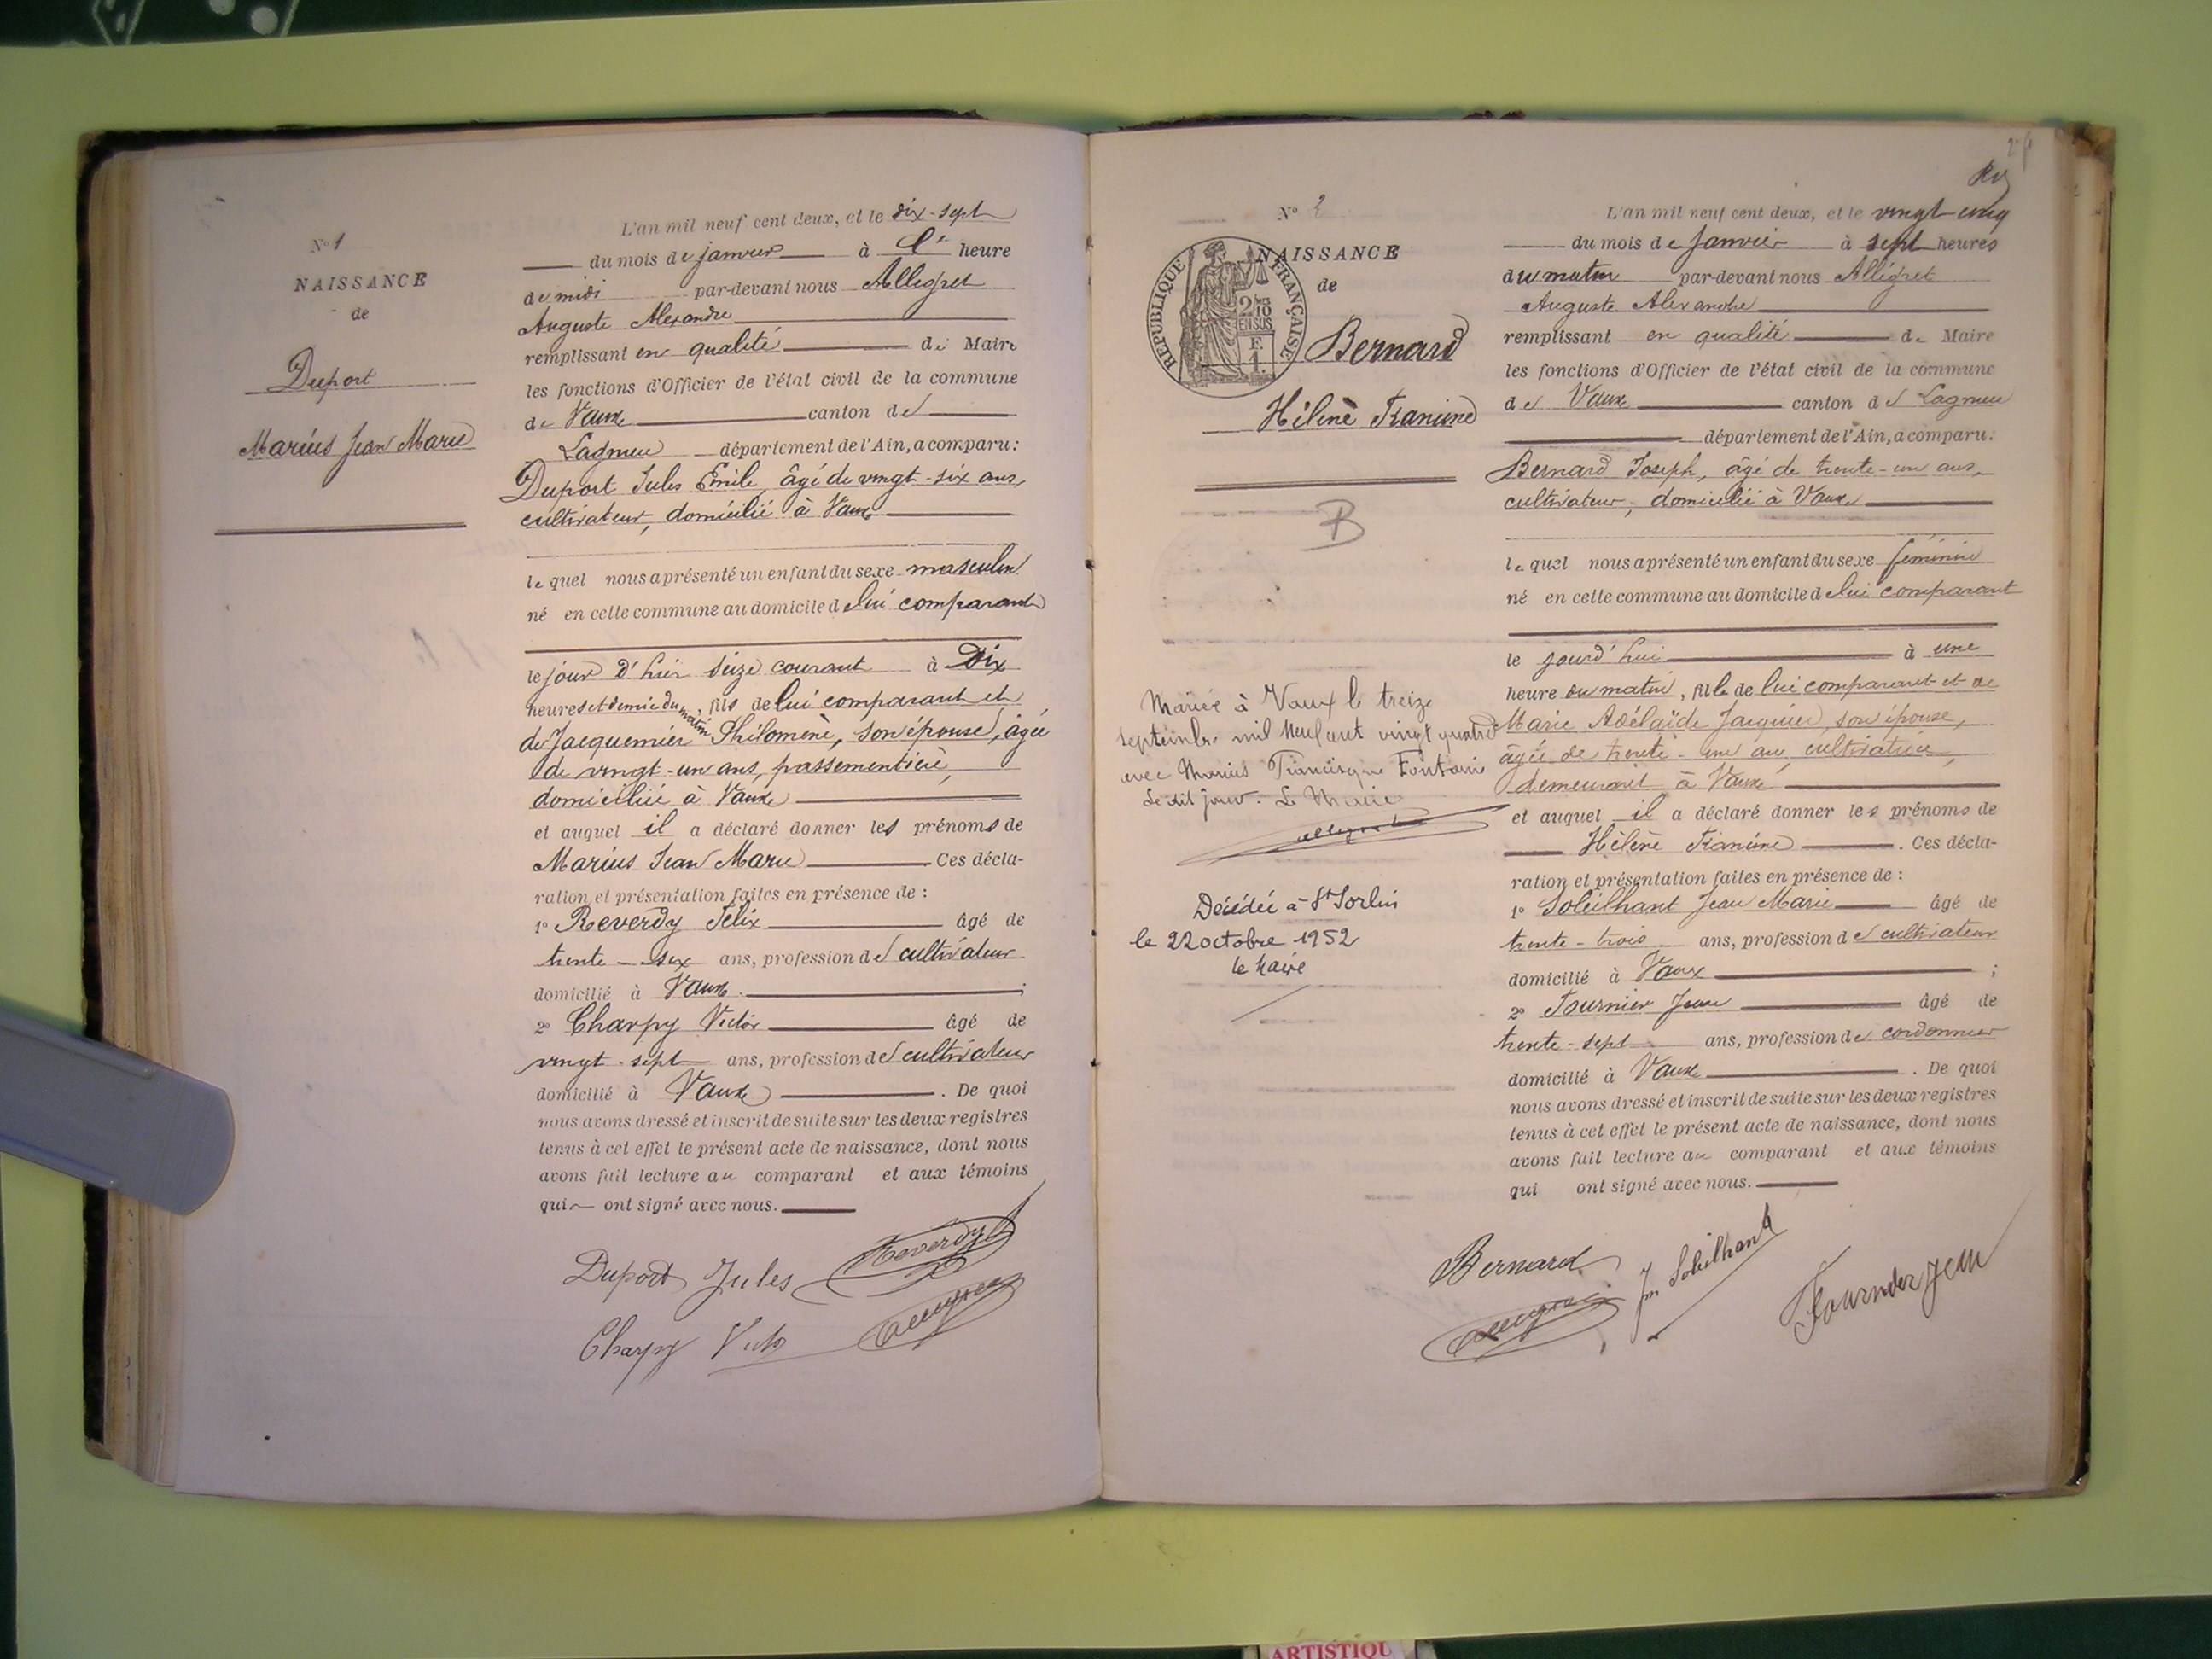 N° 1
NAISSANCE
de
Duport
Marius Jean Marie
L'an mil neuf cent deux, et le dix-sept
du mois de janvier à heure
de midi par-devant nous Allegret
Auguste Alexandre
remplissant en qualité de Maire
les fonctions d'Officier de l'état civil de la commune
de Vaux canton de
Lagnieu département de l'Ain, a comparu:
Duport Jules Emile, âgé de vingt-six ans,
cultivateur, domicilié à Vaux
le quel nous a présenté un enfant du sexe masculin
né en cette commune au domicile de lui comparant
le jour d'hier seize courant à Dix
heures et demie du matin, fils de lui comparant et
de Jacquemier Philomène, son épouse, âgée
de vingt-un ans, passementière,
domiciliée à Vaux
et auquel il a déclaré donner les prénoms de
Marius Jean Marie Ces décla-
ration et présentation faites en présence de :
1° Reverdy Félix âgé de
trente-six ans, profession de cultivateur
domicilié à Vaux ;
2° Charpy Victor âgé de
vingt-sept ans, profession de cultivateur
domicilié à Vaux . De quoi
nous avons dressé et inscrit de suite sur les deux registres
tenus à cet effet le présent acte de naissance, dont nous
avons fait lecture au comparant et aux témoins
qui ont signé avec nous.
Duport Jules Reverdy
Charpy Victor Allegret
N° 2
NAISSANCE
de
RÉPUBLIQUE FRANÇAISE
2/10
EN SUS
Bernard
Hélène Francine
B
Mariée à Vaux le treize
septembre mil neuf cent vingt quatre
avec Marius Francisque Fontaine
Le dit jour. Le Maire
Allegret
Décédée à St Sorlin
le 22 octobre 1952
le Maire
L'an mil neuf cent deux, et le vingt-cinq
du mois de Janvier à sept heures
du matin par-devant nous Allégret
Auguste Alexandre
remplissant en qualité de Maire
les fonctions d'Officier de l'état civil de la commune
de Vaux canton de Lagnieu
département de l'Ain, a comparu:
Bernard Joseph, âgé de trente-un ans,
cultivateur, domicilié à Vaux
le quel nous a présenté un enfant du sexe féminin
né en cette commune au domicile de lui comparant
le jourd'hui à une
heure du matin, fille de lui comparant et de
Marie Adélaïde Jacquier, son épouse,
âgée de trente-un an, cultivatrice,
demeurant à Vaux
et auquel il a déclaré donner les prénoms de
Hélène Francine . Ces décla-
ration et présentation faites en présence de :
1° Soleilhant Jean Marie âgé de
trente-trois ans, profession de cultivateur
domicilié à Vaux ;
2° Fournier Jean âgé de
trente-sept ans, profession de cordonnier
domicilié à Vaux . De quoi
nous avons dressé et inscrit de suite sur les deux registres
tenus à cet effet le présent acte de naissance, dont nous
avons fait lecture au comparant et aux témoins
qui ont signé avec nous.
Bernard Jn Soleilhant Fournier Jean
Allegret
ARTISTIQU